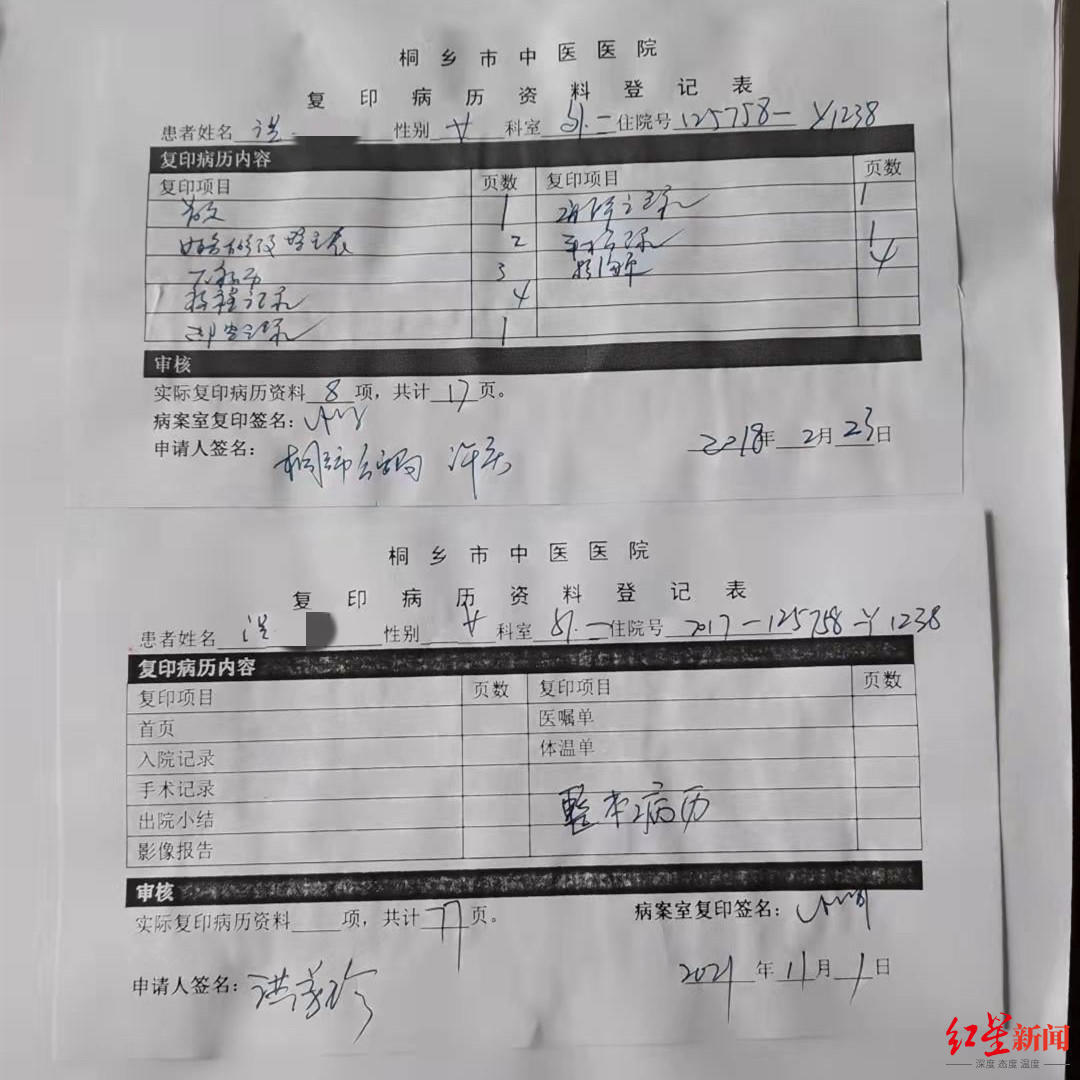 桐乡市中医医院
复印病历资料登记表
患者姓名 洪 性别 女 科室 外二 住院号 125758-Y1238
复印病历内容
复印项目 页数 复印项目 页数
首页 1 1
2 1
3 4
4
1
审核
实际复印病历资料 8 项，共计 17 页。
病案室复印签名：
申请人签名： 2018年 2月 23日
桐乡市公安局 许
桐乡市中医医院
复印病历资料登记表
患者姓名 洪 性别 女 科室 外二 住院号 2017-125758-Y1238
复印病历内容
复印项目 页数 复印项目 页数
首页 医嘱单
入院记录 体温单
手术记录
整本病历
出院小结
影像报告
审核
实际复印病历资料 项，共计 77 页。 病案室复印签名：
申请人签名： 洪 珍 2021 年 11 月 1 日
红星新闻
深度 态度 温度